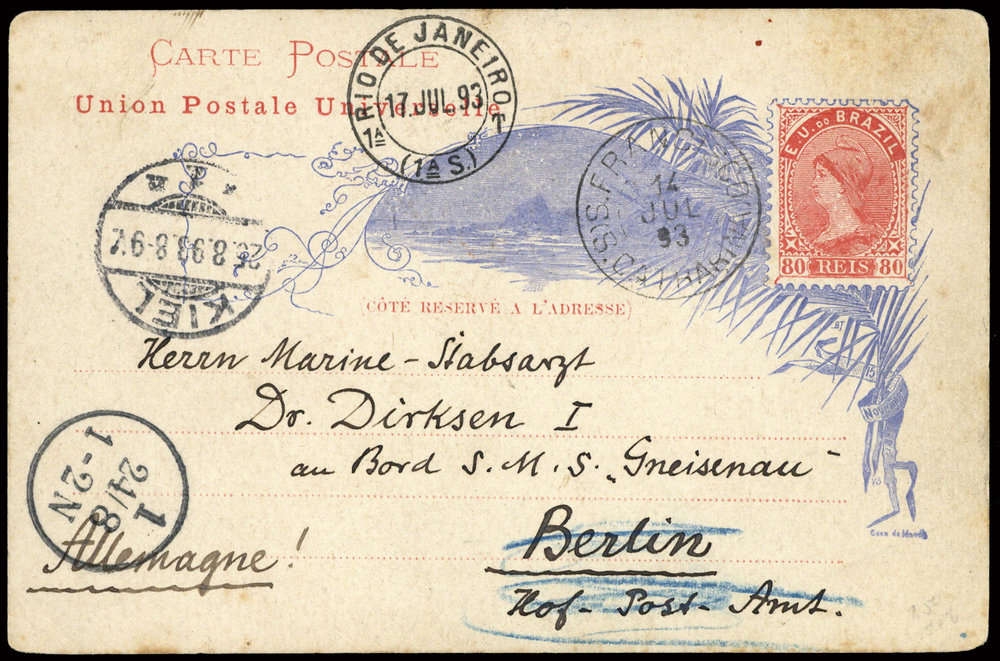 CARTE POSTALE
Union Postale Universelle
RIO DE JANEIRO
17 JUL 93
1A T
(1A S.)
S. FRANCISCO
14
JUL
93
S. CATHARINA
E. U. DO BRAZIL
80 REIS 80
KIEL
25.8.93.8-9V.
CÔTÉ RESERVÉ A L'ADRESSE
Herrn Marine-Stabsarzt
Dr. Dirksen I
an Bord S. M. S. „Gneisenau"
1
24/8
1-2N
Allemagne!
Berlin
Hof-Post-Amt.
15
Casa da Moeda